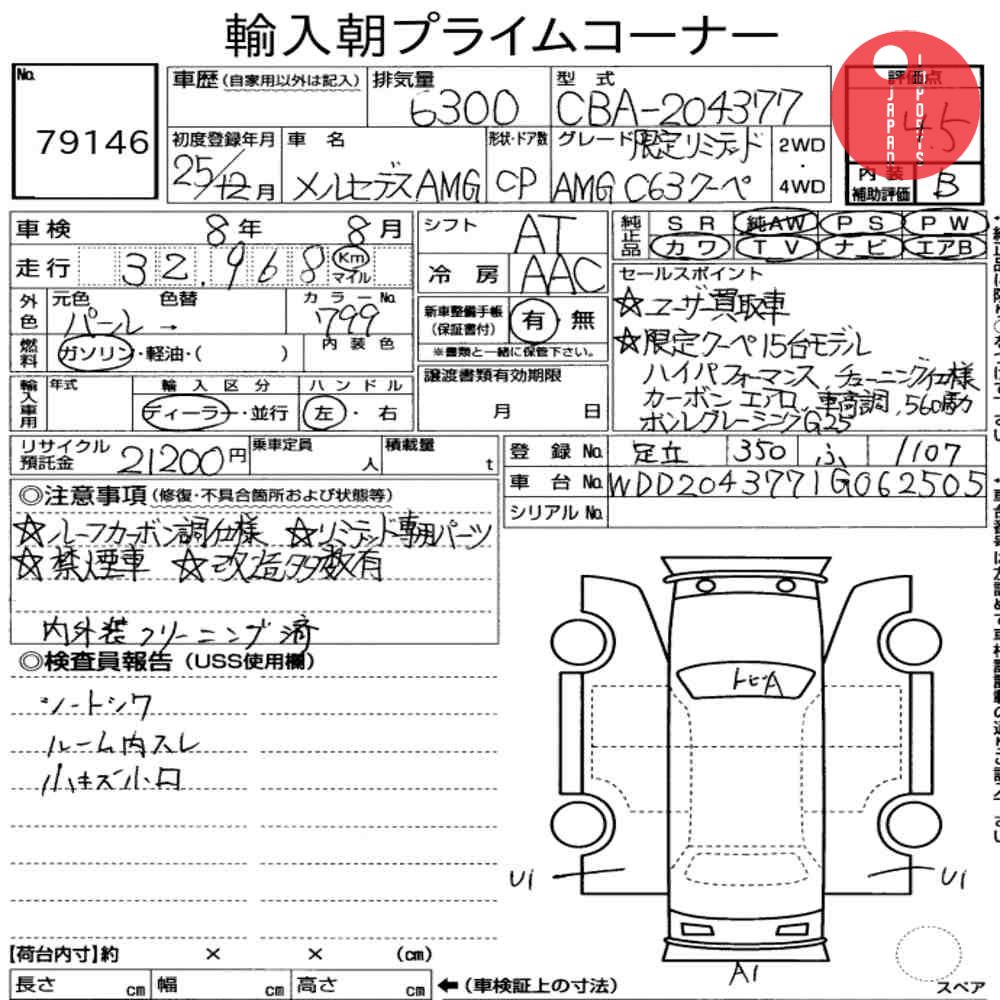 輸入朝プライムコーナー
No.
79146
車歴(自家用以外は記入)
排気量
6300
型式
CBA-204377
評価点
4.5
JAPAN
IMPORTS
初度登録年月
25/12月
車名
メルセデスAMG
形状・ドア数
CP
グレード
限定リミテッド
AMG C63クーペ
2WD
・
4WD
内装
補助評価
B
車検
8年 8月
走行
32.968
Km
マイル
シフト
AT
冷房
AAC
純正品
SR 純AW PS PW
カワ TV ナビ エアB
外色
元色
パール→
色替
カラーNo.
799
内装色
燃料
ガソリン・軽油・( )
新車整備手帳
(保証書付)
有 無
※書類と一緒に保管下さい。
セールスポイント
☆ユーザー買取車
☆限定クーペ15台モデル
ハイパフォーマンス,チューニング仕様
カーボンエアロ,車高調,560馬力
ボルグレーシングG25
輸入車用
年式
輸入区分
ディーラー・並行
ハンドル
左・右
譲渡書類有効期限
月 日
リサイクル預託金
21200円
乗車定員
人
積載量
t
登録No.
足立 350 ふ 1107
車台No.
WDD2043771G062505
シリアルNo.
◎注意事項(修復・不具合箇所および状態等)
☆ルーフカーボン調仕様 ☆リミテッド専用パーツ
☆禁煙車 ☆改造多数有
内外装クリーニング済
◎検査員報告(USS使用欄)
シートシワ
ルーム内スレ
小キズ小凹
トビA
U1
U1
A1
【荷台内寸】約 × × (cm)
長さ cm 幅 cm 高さ cm
←(車検証上の寸法)
スペア